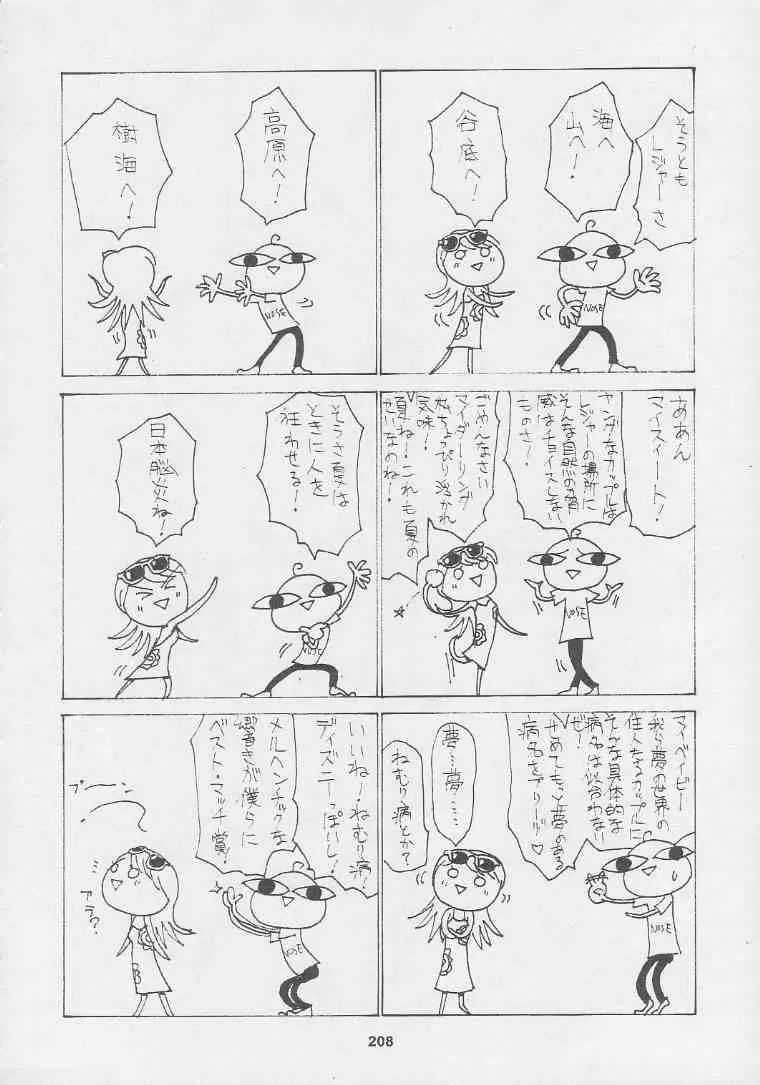 そうとも
レジャーさ
海へ
山へ!
谷底へ!
NOSE
高原へ!
樹海へ!
NOSE
ああん
マイスィート!
ヤングなカップルは
レジャーの場所に
そんな自然の脅
威はチョイスしない
ものさ!
ごめんなさい
マイダーリング
私ちょっぴり浮かれ
気味!
夏ね!これも夏の
せいなのね!
NOSE
そうさ夏は
ときに人を
狂わせる!
日本脳炎ね!
NOSE
マイベイビー
我ら夢の世界の
住人たるカップルに
そんな具体的な
病名は似合わない
ぜ!
せめてもっと夢のある
病名をプリーズ♡
夢…夢……
ねむり病とか?
NOSE
いいね!ねむり病!
ディズニーっぽいし!
メルヘンチックな
響きが僕らに
ベスト・マッチ賞!
プーン
アラ?
NOSE
208